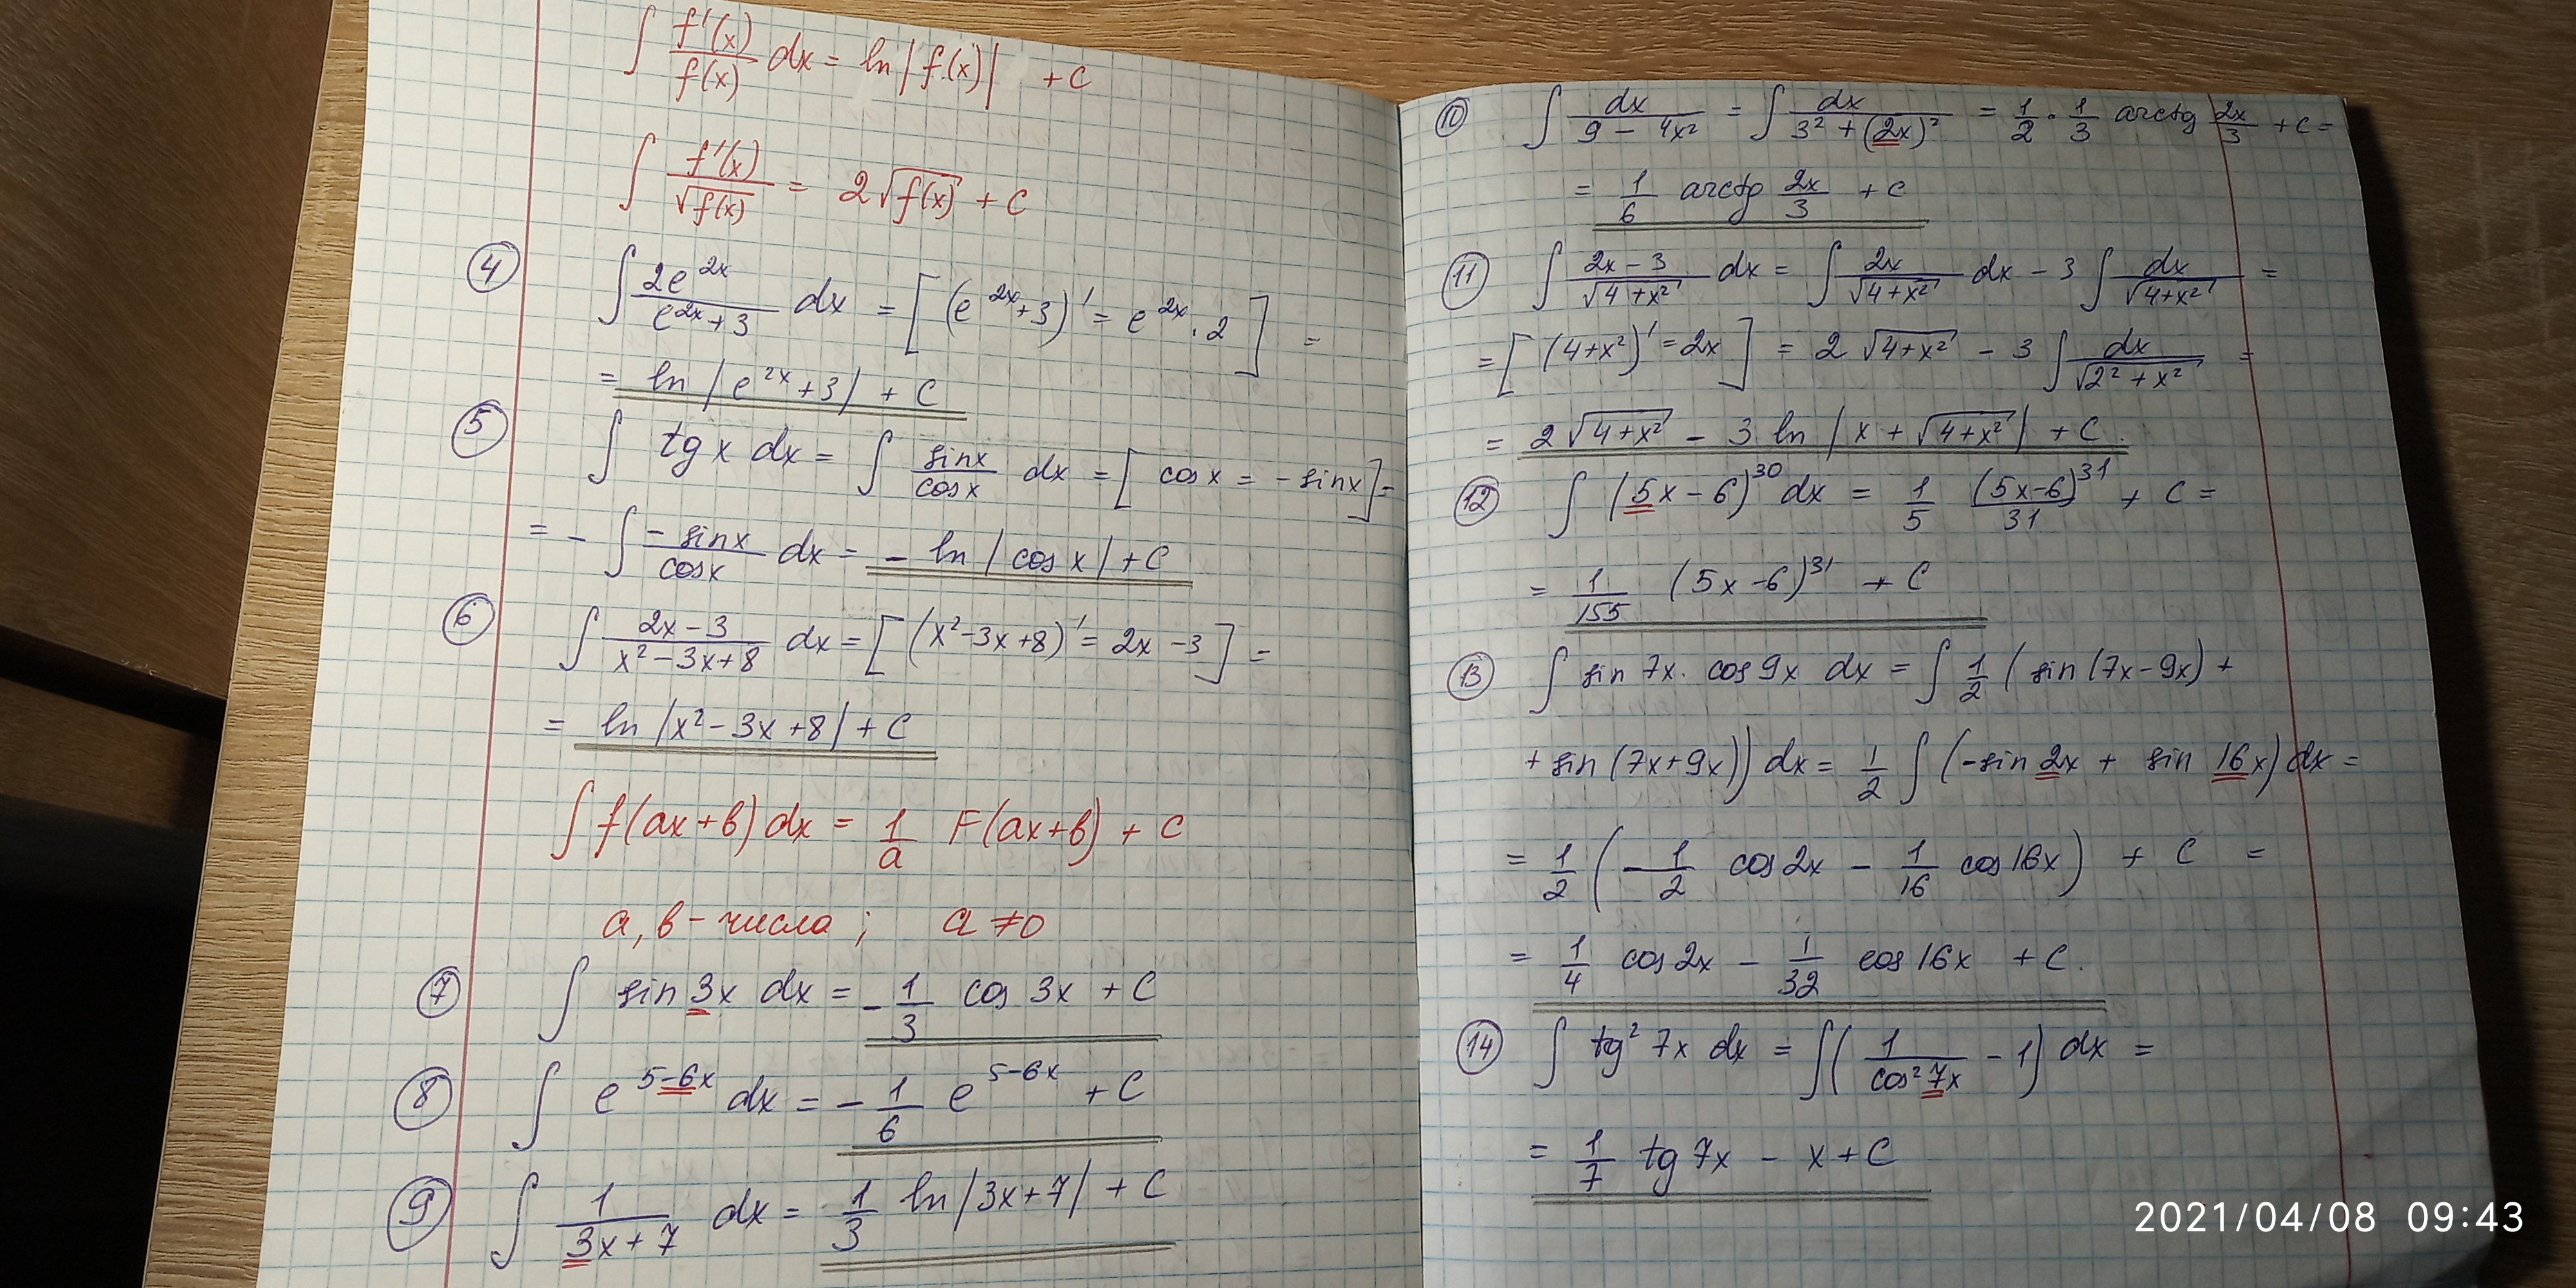 ∫ f'(x)/f(x) dx = ln |f(x)| + C
∫ f'(x)/√f(x) = 2√f(x) + C
④ ∫ 2e^2x/(e^2x + 3) dx = [(e^2x + 3)' = e^2x · 2] =
= ln |e^2x + 3| + C
⑤ ∫ tg x dx = ∫ sinx/cosx dx = [cosx = - sinx] =
= - ∫ - sinx/cosx dx = - ln |cos x| + C
⑥ ∫ (2x - 3)/(x² - 3x + 8) dx = [(x² - 3x + 8)' = 2x - 3] =
= ln |x² - 3x + 8| + C
∫ f(ax + b) dx = 1/a F(ax + b) + C
a, b - числа ; a ≠ 0
⑦ ∫ sin 3x dx = - 1/3 cos 3x + C
⑧ ∫ e^(5-6x) dx = - 1/6 e^(5-6x) + C
⑨ ∫ 1/(3x + 7) dx = 1/3 ln |3x + 7| + C
⑩ ∫ dx/(9 - 4x²) = ∫ dx/(3² + (2x)²) = 1/2 · 1/3 arctg 2x/3 + C =
= 1/6 arctg 2x/3 + C
⑪ ∫ (2x - 3)/√(4 + x²) dx = ∫ 2x/√(4 + x²) dx - 3 ∫ dx/√(4 + x²) =
= [(4 + x²)' = 2x] = 2 √(4 + x²) - 3 ∫ dx/√(2² + x²) =
= 2√(4 + x²) - 3 ln |x + √(4 + x²)| + C.
⑫ ∫ (5x - 6)^30 dx = 1/5 (5x - 6)^31/31 + C =
= 1/155 (5x - 6)^31 + C
⑬ ∫ sin 7x · cos 9x dx = ∫ 1/2 (sin (7x - 9x) +
+ sin (7x + 9x)) dx = 1/2 ∫ (- sin 2x + sin 16x) dx =
= 1/2 (- 1/2 cos 2x - 1/16 cos 16x) + C =
= 1/4 cos 2x - 1/32 cos 16x + C.
⑭ ∫ tg² 7x dx = ∫ (1/cos² 7x - 1) dx =
= 1/7 tg 7x - x + C
2021/04/08 09:43